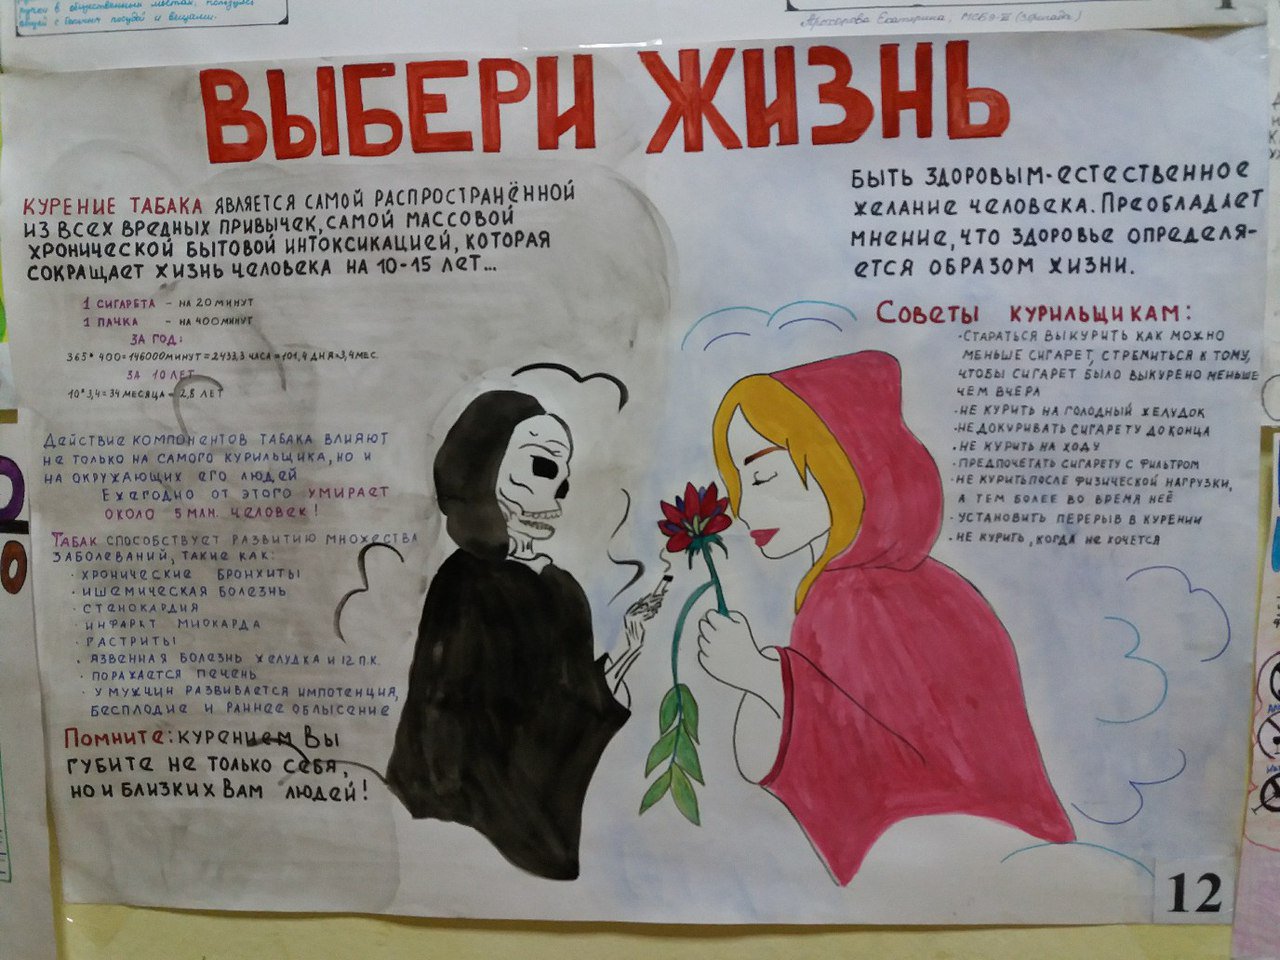 ручки в общественных местах, пользуйся
общей с больным посудой и вещами.
Прохорова Екатерина, МСБ9-III (зарплада)
ВЫБЕРИ ЖИЗНЬ
КУРЕНИЕ ТАБАКА ЯВЛЯЕТСЯ САМОЙ РАСПРОСТРАНЁННОЙ
ИЗ ВСЕХ ВРЕДНЫХ ПРИВЫЧЕК, САМОЙ МАССОВОЙ
ХРОНИЧЕСКОЙ БЫТОВОЙ ИНТОКСИКАЦИЕЙ, КОТОРАЯ
СОКРАЩАЕТ ЖИЗНЬ ЧЕЛОВЕКА НА 10-15 ЛЕТ...
1 СИГАРЕТА - НА 20 МИНУТ
1 ПАЧКА - НА 400 МИНУТ
ЗА ГОД:
365*400=146000 МИНУТ=2433,3 ЧАСА=101,4 ДНЯ=3,4 МЕС.
ЗА 10 ЛЕТ
10*3,4=34 МЕСЯЦА=2,8 ЛЕТ
ДЕЙСТВИЕ КОМПОНЕНТОВ ТАБАКА ВЛИЯЮТ
НЕ ТОЛЬКО НА САМОГО КУРИЛЬЩИКА, НО И
НА ОКРУЖАЮЩИХ ЕГО ЛЮДЕЙ
ЕЖЕГОДНО ОТ ЭТОГО УМИРАЕТ
ОКОЛО 5 МЛН. ЧЕЛОВЕК!
ТАБАК СПОСОБСТВУЕТ РАЗВИТИЮ МНОЖЕСТВА
ЗАБОЛЕВАНИЙ, ТАКИЕ КАК:
· ХРОНИЧЕСКИЕ БРОНХИТЫ
· ИШЕМИЧЕСКАЯ БОЛЕЗНЬ
· СТЕНОКАРДИЯ
· ИНФАРКТ МИОКАРДА
· ГАСТРИТЫ
· ЯЗВЕННАЯ БОЛЕЗНЬ ЖЕЛУДКА И 12 П.К.
· ПОРАЖАЕТСЯ ПЕЧЕНЬ
· У МУЖЧИН РАЗВИВАЕТСЯ ИМПОТЕНЦИЯ,
БЕСПЛОДИЕ И РАННЕЕ ОБЛЫСЕНИЕ
ПОМНИТЕ: КУРЕНИЕМ ВЫ
ГУБИТЕ НЕ ТОЛЬКО СЕБЯ,
НО И БЛИЗКИХ ВАМ ЛЮДЕЙ!
БЫТЬ ЗДОРОВЫМ-ЕСТЕСТВЕННОЕ
ЖЕЛАНИЕ ЧЕЛОВЕКА. ПРЕОБЛАДАЕТ
МНЕНИЕ, ЧТО ЗДОРОВЬЕ ОПРЕДЕЛЯ-
ЕТСЯ ОБРАЗОМ ЖИЗНИ.
СОВЕТЫ КУРИЛЬЩИКАМ:
·СТАРАТЬСЯ ВЫКУРИТЬ КАК МОЖНО
МЕНЬШЕ СИГАРЕТ, СТРЕМИТЬСЯ К ТОМУ,
ЧТОБЫ СИГАРЕТ БЫЛО ВЫКУРЕНО МЕНЬШЕ
ЧЕМ ВЧЕРА
·НЕ КУРИТЬ НА ГОЛОДНЫЙ ЖЕЛУДОК
·НЕ ДОКУРИВАТЬ СИГАРЕТУ ДО КОНЦА
·НЕ КУРИТЬ НА ХОДУ
·ПРЕДПОЧЕТАТЬ СИГАРЕТУ С ФИЛЬТРОМ
·НЕ КУРИТЬ ПОСЛЕ ФИЗИЧЕСКОЙ НАГРУЗКИ,
А ТЕМ БОЛЕЕ ВО ВРЕМЯ НЕЁ
·УСТАНОВИТЬ ПЕРЕРЫВ В КУРЕНИИ
·НЕ КУРИТЬ, КОГДА НЕ ХОЧЕТСЯ
12